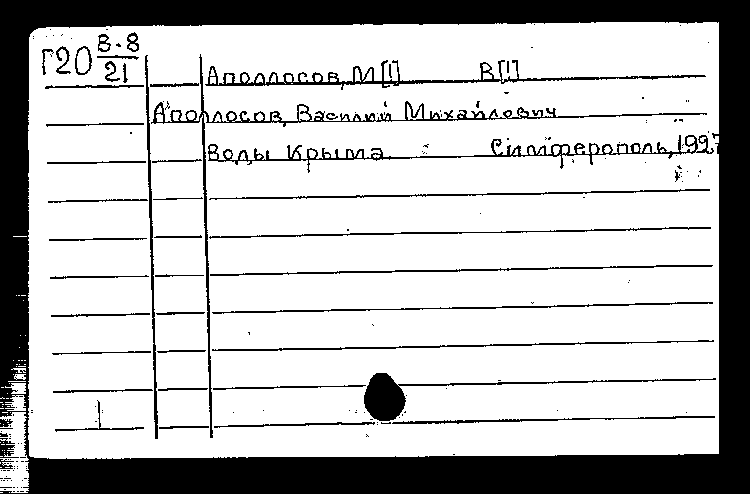 Г20 В-8/21
Аполлосов, М[!] В[!]
Аполлосов, Василий Михайлович
Воды Крыма. Сімферополь, 1927